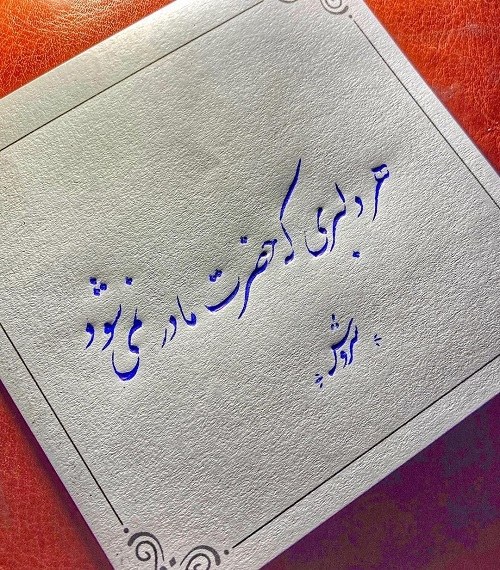 هر دلبری که حضرت مادر نمی‌شود
سروش